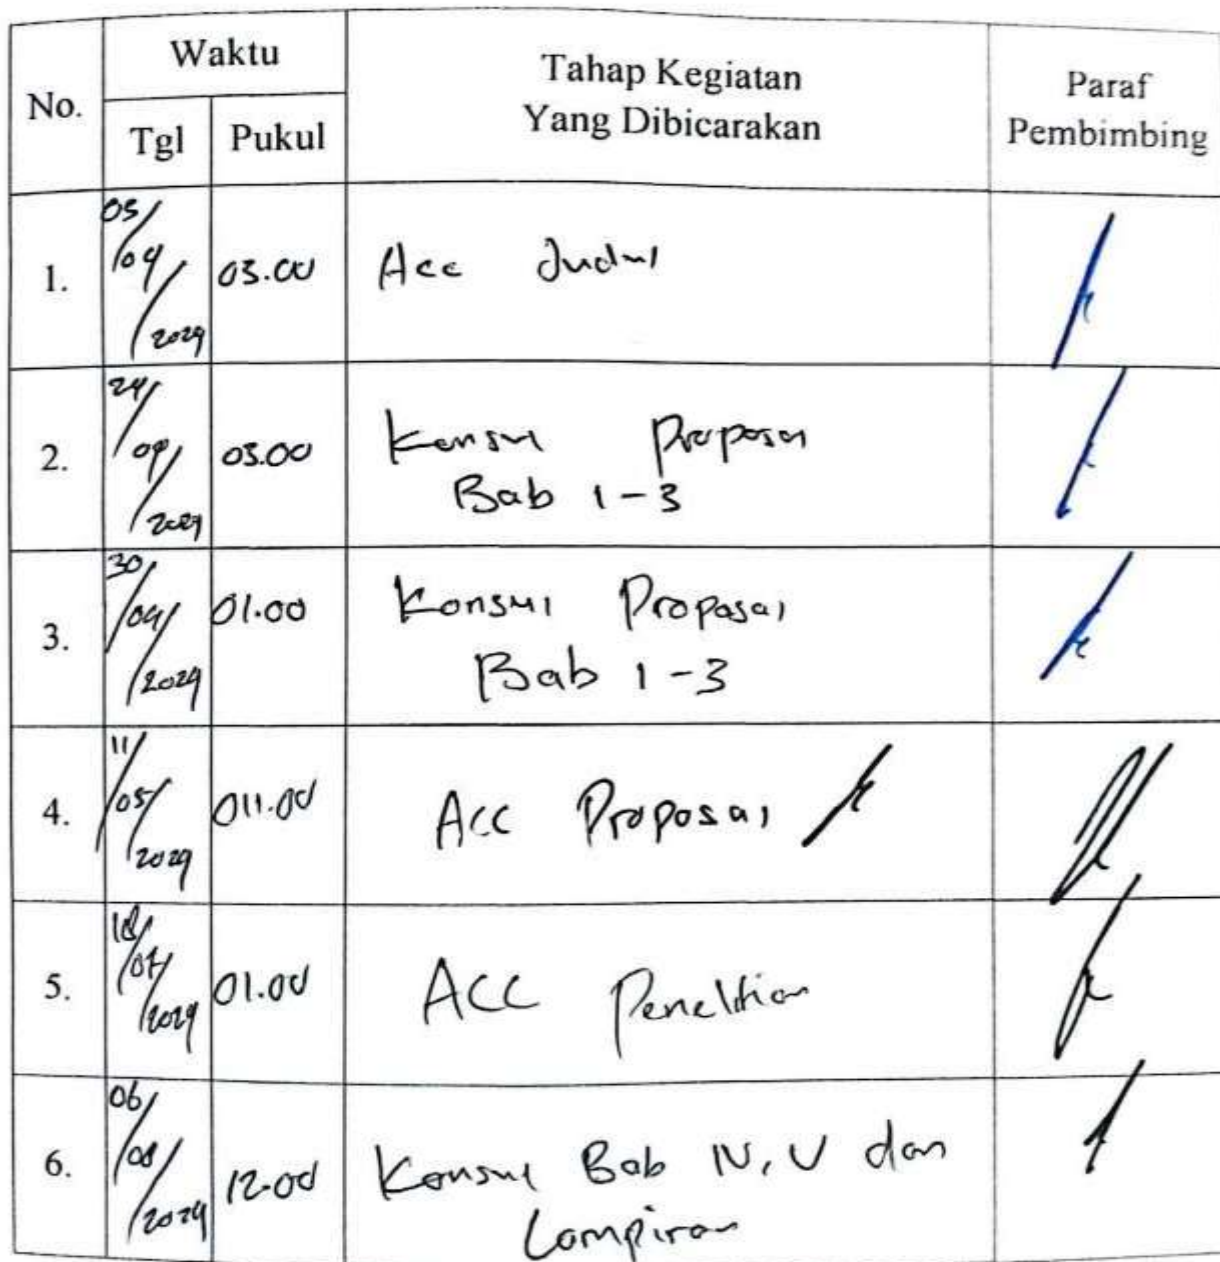 No. Waktu Tahap Kegiatan Yang Dibicarakan Paraf Pembimbing
Tgl Pukul
1. 03/04/2024 03.00 Acc Judul
2. 24/04/2024 03.00 Konsul Proposal
Bab 1-3
3. 30/04/2024 01.00 Konsul Proposal
Bab 1-3
4. 11/05/2024 011.00 ACC Proposal
5. 18/07/2024 01.00 ACC Penelitian
6. 06/08/2024 12.00 Konsul Bab IV, V dan
Lampiran